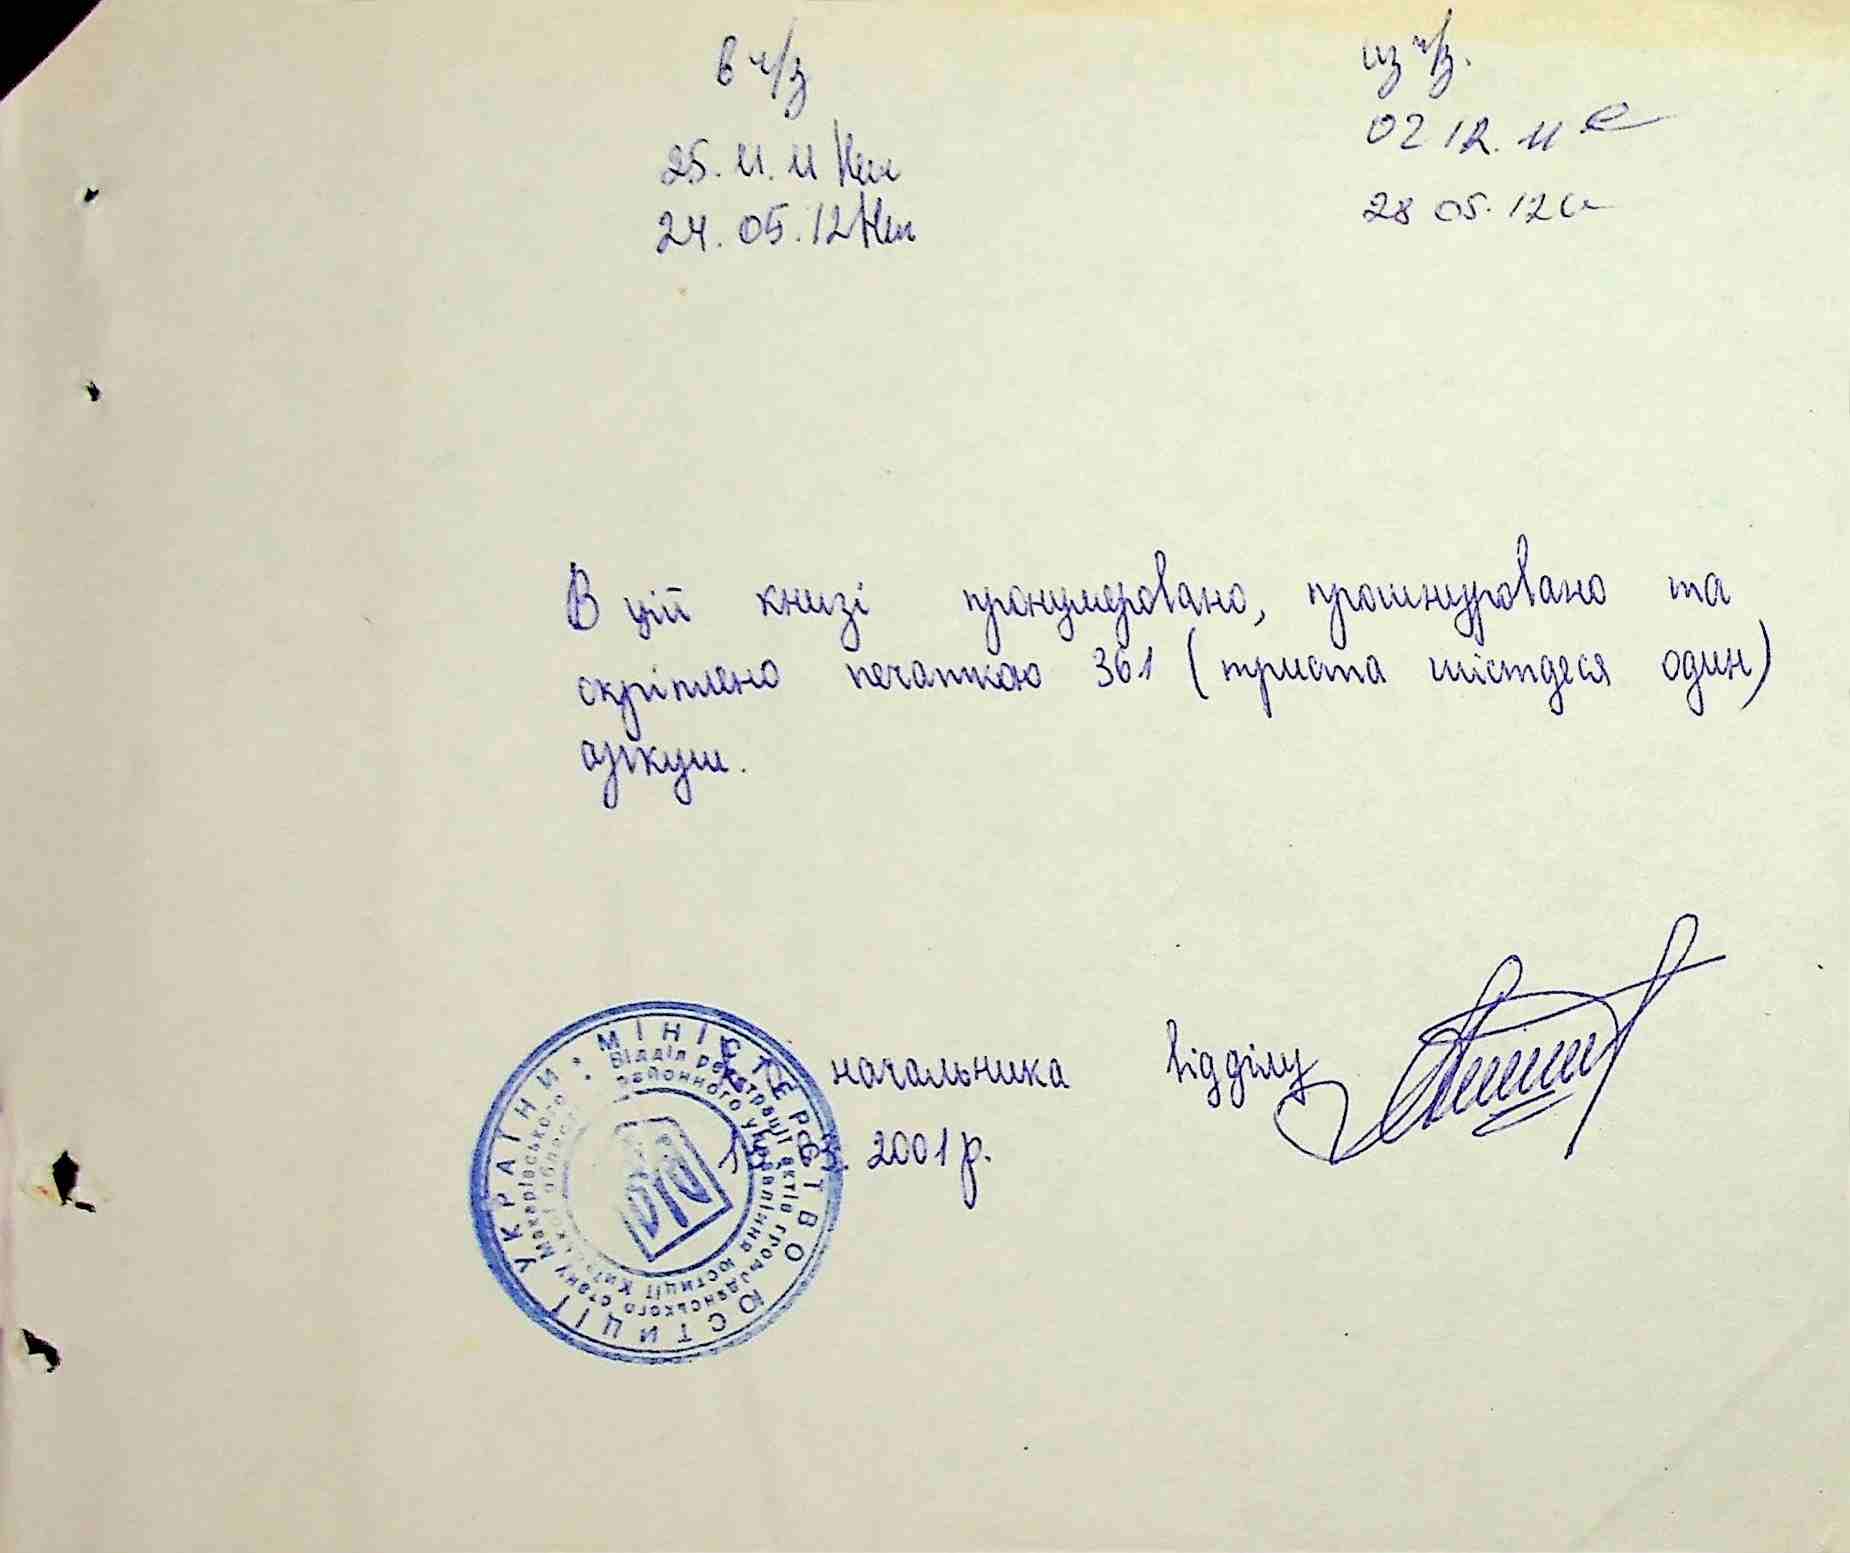 в ч/з
из ч/з.
25.11.11
02 12. 11
24.05.12
28 05.12
В цій книзі пронумеровано, прошнуровано та
скріплено печаткою 361 (триста шістдеся один)
аркуш.
начальника відділу
2001 р.
МІНІСТЕРСТВО ЮСТИЦІЇ УКРАЇНИ
Відділ реєстрації актів громадянського стану Макарівського
районного управління юстиції Київської області